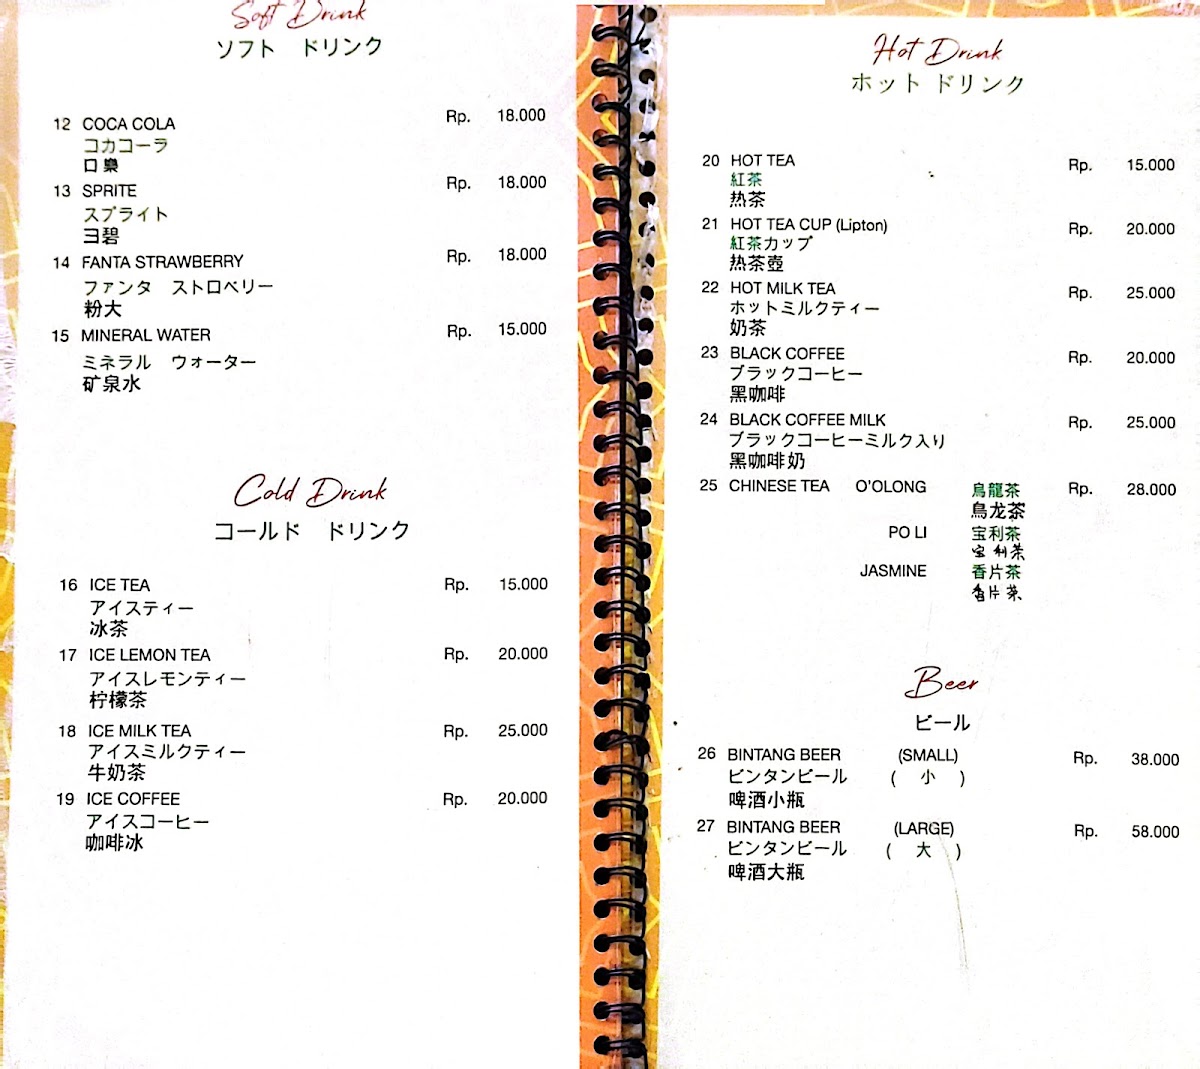 Soft Drink
ソフト ドリンク
12 COCA COLA Rp. 18.000
コカコーラ
口樂
13 SPRITE Rp. 18.000
スプライト
ヨ碧
14 FANTA STRAWBERRY Rp. 18.000
ファンタ ストロベリー
粉大
15 MINERAL WATER Rp. 15.000
ミネラル ウォーター
矿泉水
Cold Drink
コールド ドリンク
16 ICE TEA Rp. 15.000
アイスティー
冰茶
17 ICE LEMON TEA Rp. 20.000
アイスレモンティー
柠檬茶
18 ICE MILK TEA Rp. 25.000
アイスミルクティー
牛奶茶
19 ICE COFFEE Rp. 20.000
アイスコーヒー
咖啡冰
Hot Drink
ホット ドリンク
20 HOT TEA Rp. 15.000
紅茶
热茶
21 HOT TEA CUP (Lipton) Rp. 20.000
紅茶カップ
热茶壺
22 HOT MILK TEA Rp. 25.000
ホットミルクティー
奶茶
23 BLACK COFFEE Rp. 20.000
ブラックコーヒー
黑咖啡
24 BLACK COFFEE MILK Rp. 25.000
ブラックコーヒーミルク入り
黑咖啡奶
25 CHINESE TEA O'OLONG 烏龍茶 Rp. 28.000
鳥龙茶
PO LI 宝利茶
宝利茶
JASMINE 香片茶
香片茶
Beer
ビール
26 BINTANG BEER (SMALL) Rp. 38.000
ビンタンビール ( 小 )
啤酒小瓶
27 BINTANG BEER (LARGE) Rp. 58.000
ビンタンビール ( 大 )
啤酒大瓶